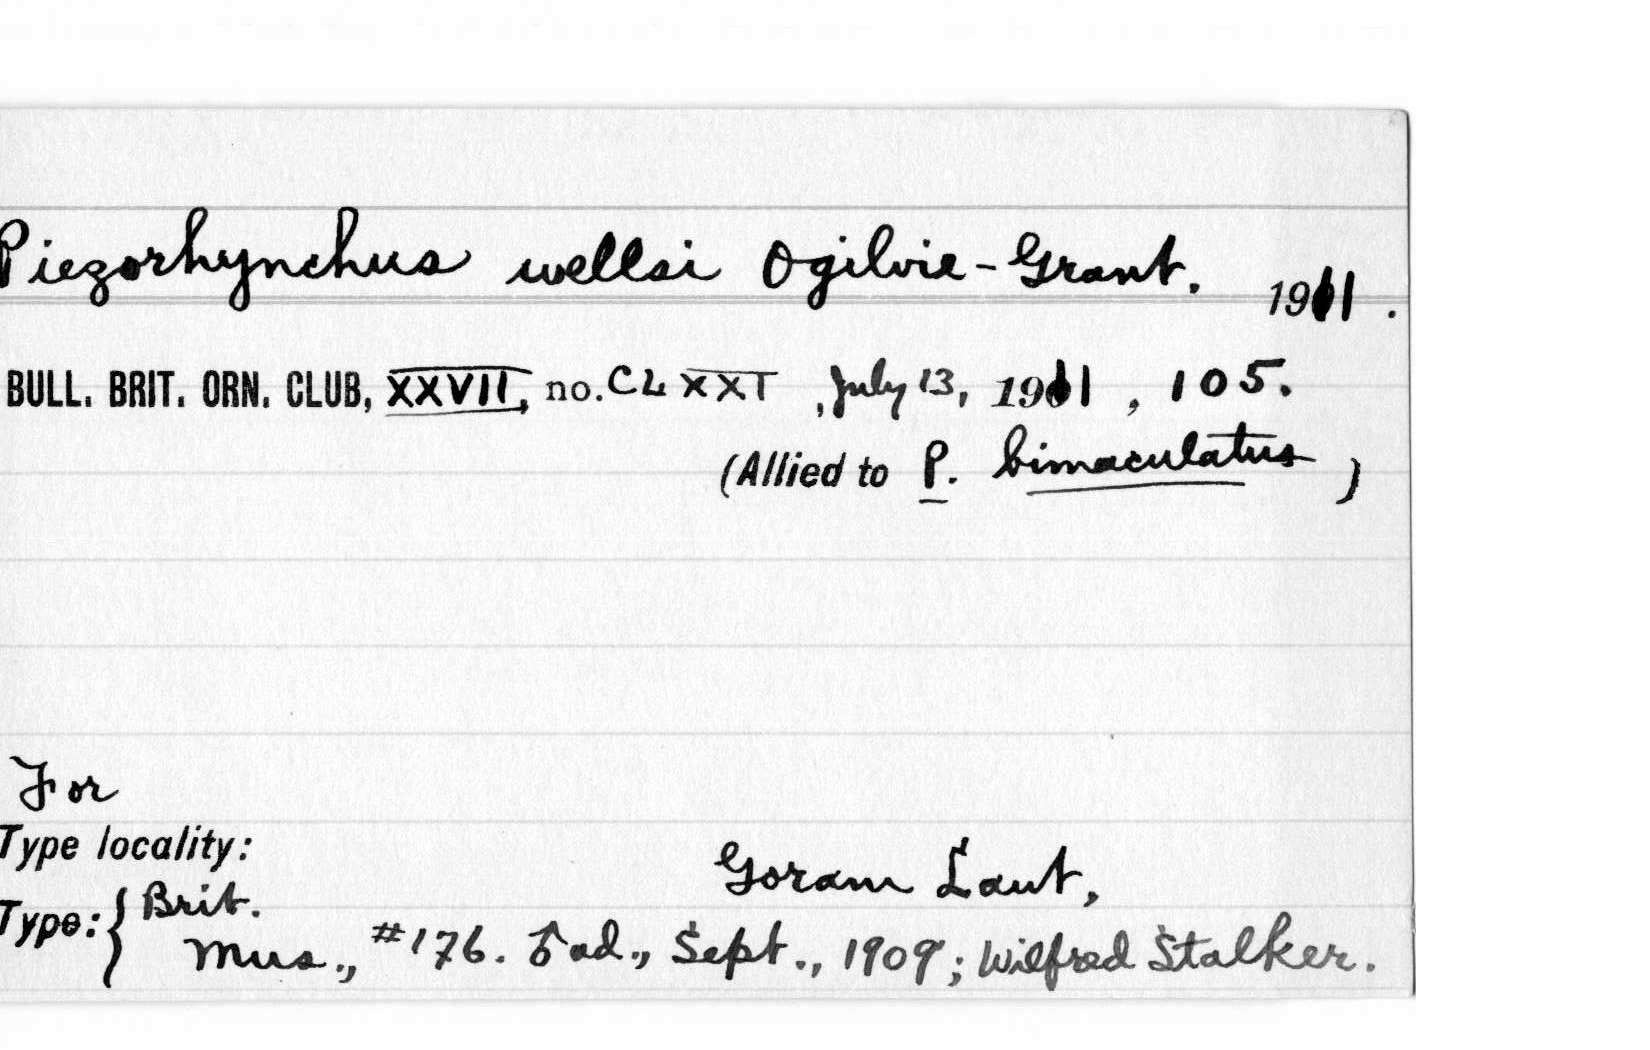 Piezorhynchus wellsi Ogilvie-Grant. 1911.
BULL. BRIT. ORN. CLUB, XXVII, no. CLXXI, July 13, 1911, 105.
(Allied to P. bimaculatus)
For
Type locality:
Goram Laut,
Type: { Brit.
Mus., #176. ♂ ad., Sept., 1909; Wilfred Stalker.